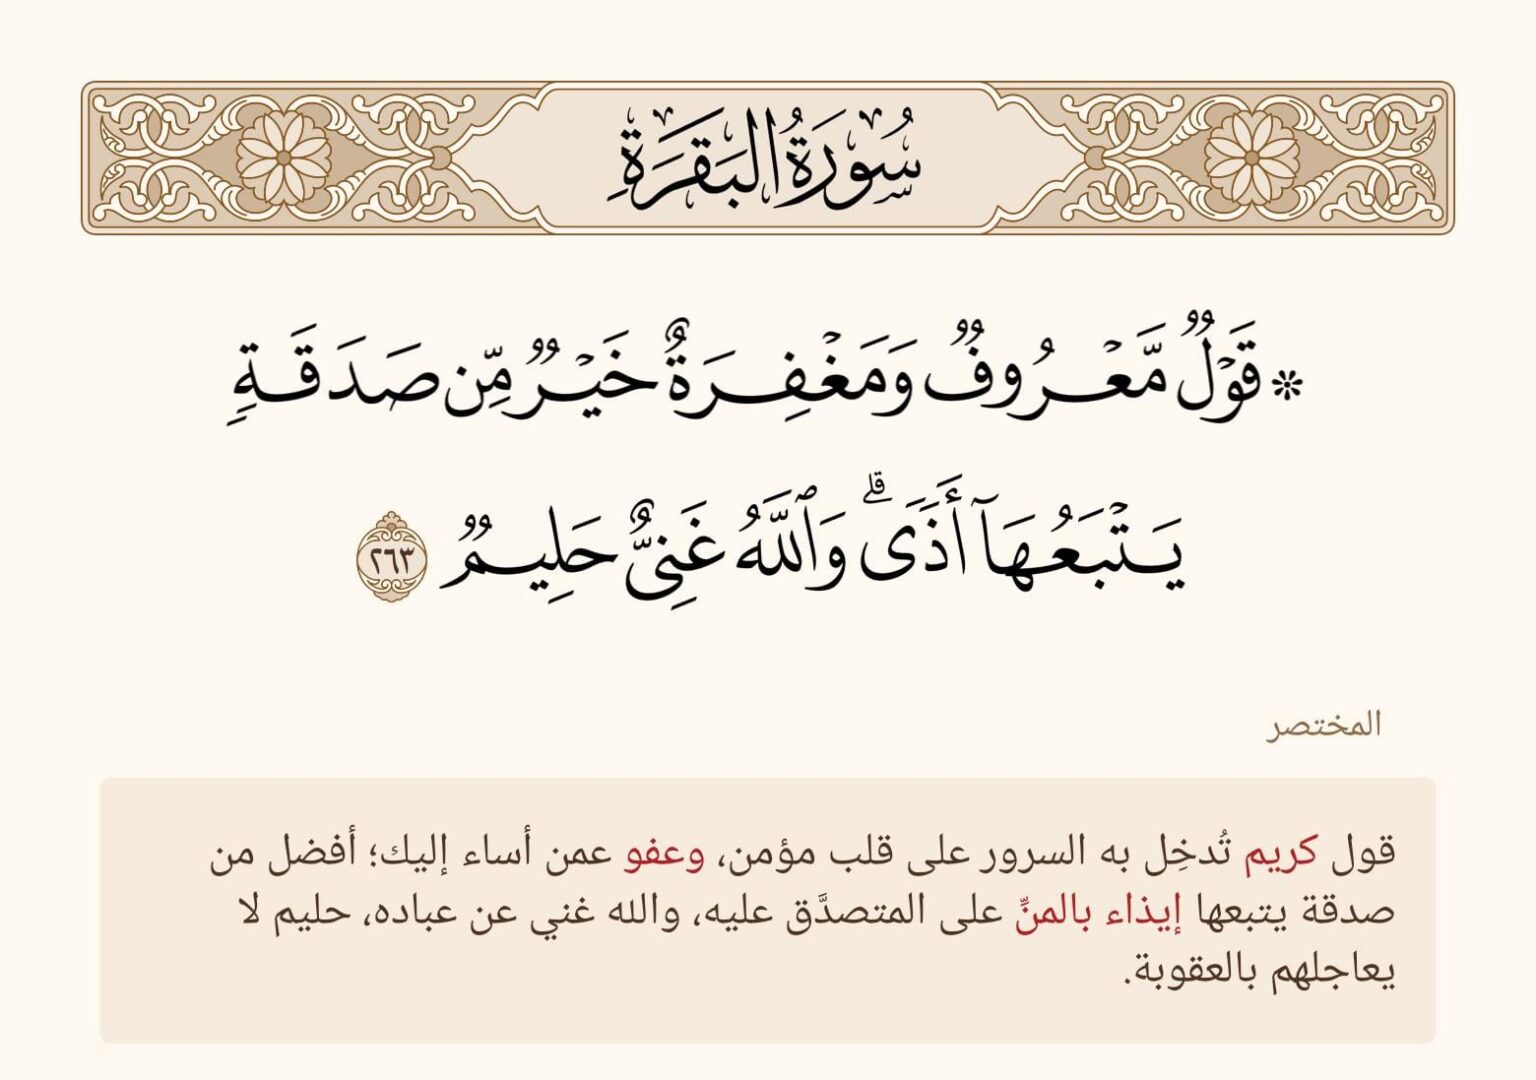 سُورَةُ البَقَرَةِ
۞ قَوۡلٞ مَّعۡرُوفٞ وَمَغۡفِرَةٌ خَيۡرٞ مِّن صَدَقَةٖ
يَتۡبَعُهَآ أَذٗىۗ وَٱللَّهُ غَنِيٌّ حَلِيمٞ ٢٦٣
المختصر
قول كريم تُدخِل به السرور على قلب مؤمن، وعفو عمن أساء إليك؛ أفضل من
صدقة يتبعها إيذاء بالمنِّ على المتصدَّق عليه، والله غني عن عباده، حليم لا
يعاجلهم بالعقوبة.